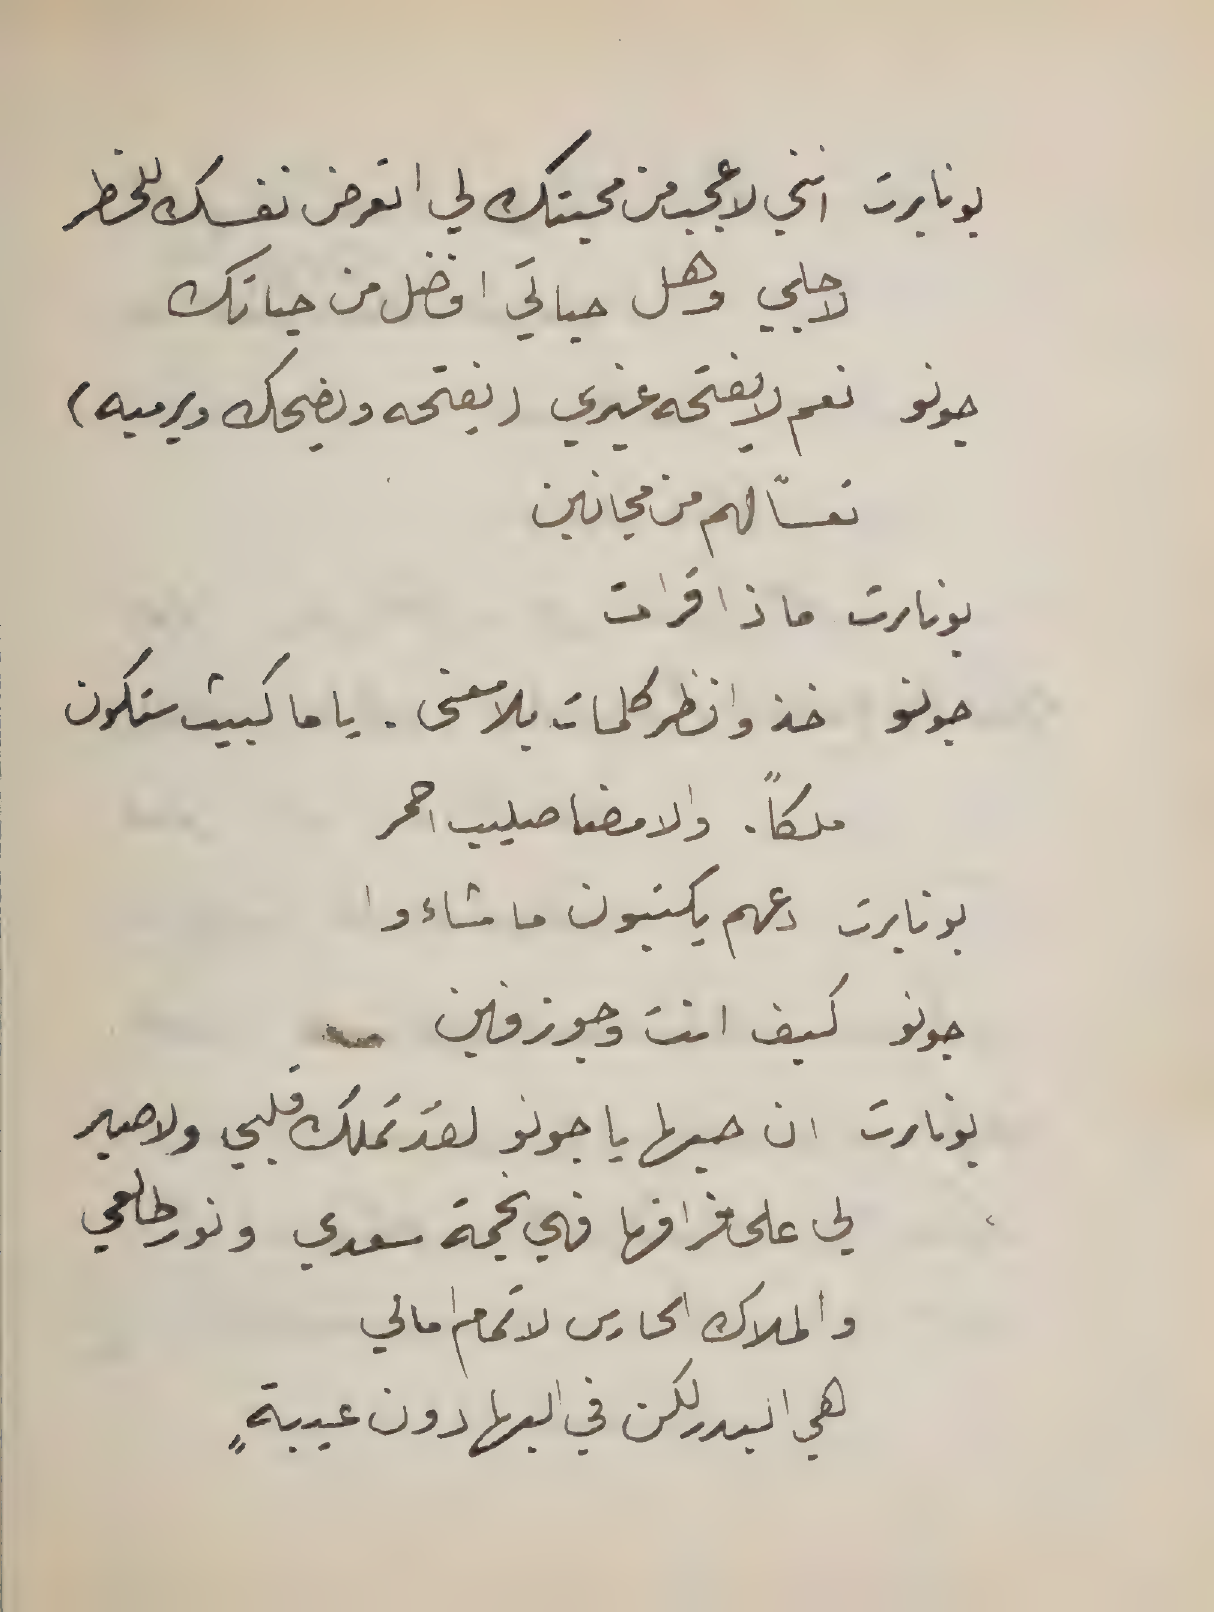 بونابرت انني لاعجب من محبتك لي اتعرض نفسك للخطر
لاجلي وهل حياتي افضل من حياتك
جونو نعم لا يفتحه غيري (يفتحه ويضحك ويرميه)
تعسًا لهم من مجانين
بونابرت ماذا قرات
جونو خذ وانظر كلمات بلا معنى . يا ما كبيث ستكون
ملكاً . والامضا صليب احمر
بونابرت دعهم يكتبون ما شاءوا
جونو كيف انت وجوزفين
بونابرت ان حبها يا جونو لقد تملك قلبي ولا صبر
لي على فراقها فهي نجمة سعدي ونور طالعي
والملاك الحارس لاتمام امالي
هي البدر لكن في البها دون عيبةٍ